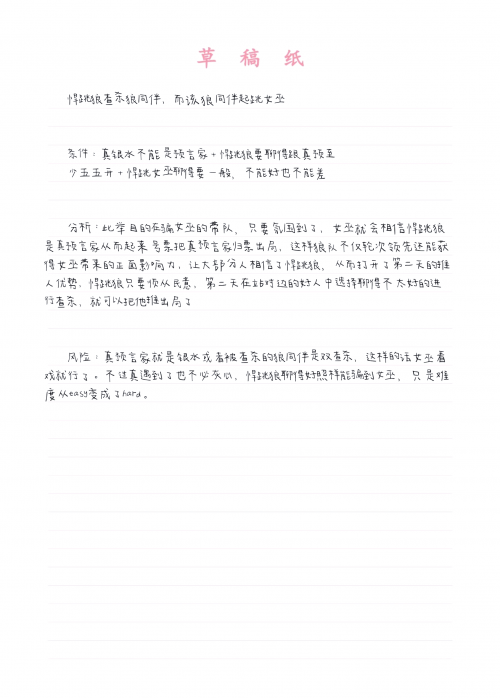 草 稿 纸
悍跳狼查杀狼同伴，而该狼同伴起跳女巫
条件：真银水不能是预言家＋悍跳狼要聊得跟真预至
少五五开＋悍跳女巫聊得要一般，不能好也不能差
分析：此举目的在骗女巫的带队，只要氛围到了，女巫就会相信悍跳狼
是真预言家从而起来号票把真预言家归票出局，这样狼队不仅轮次领先还能获
得女巫带来的正面影响力，让大部分人相信了悍跳狼，从而打开了第二天的推
人优势。悍跳狼只要顺从民意，第二天在站对边的好人中选择聊得不太好的进
行查杀，就可以把他推出局了
风险：真预言家就是银水或者被查杀的狼同伴是双查杀，这样的话女巫看
戏就行了。不过真遇到了也不必灰心，悍跳狼聊得好照样能骗到女巫，只是难
度从easy变成了hard。